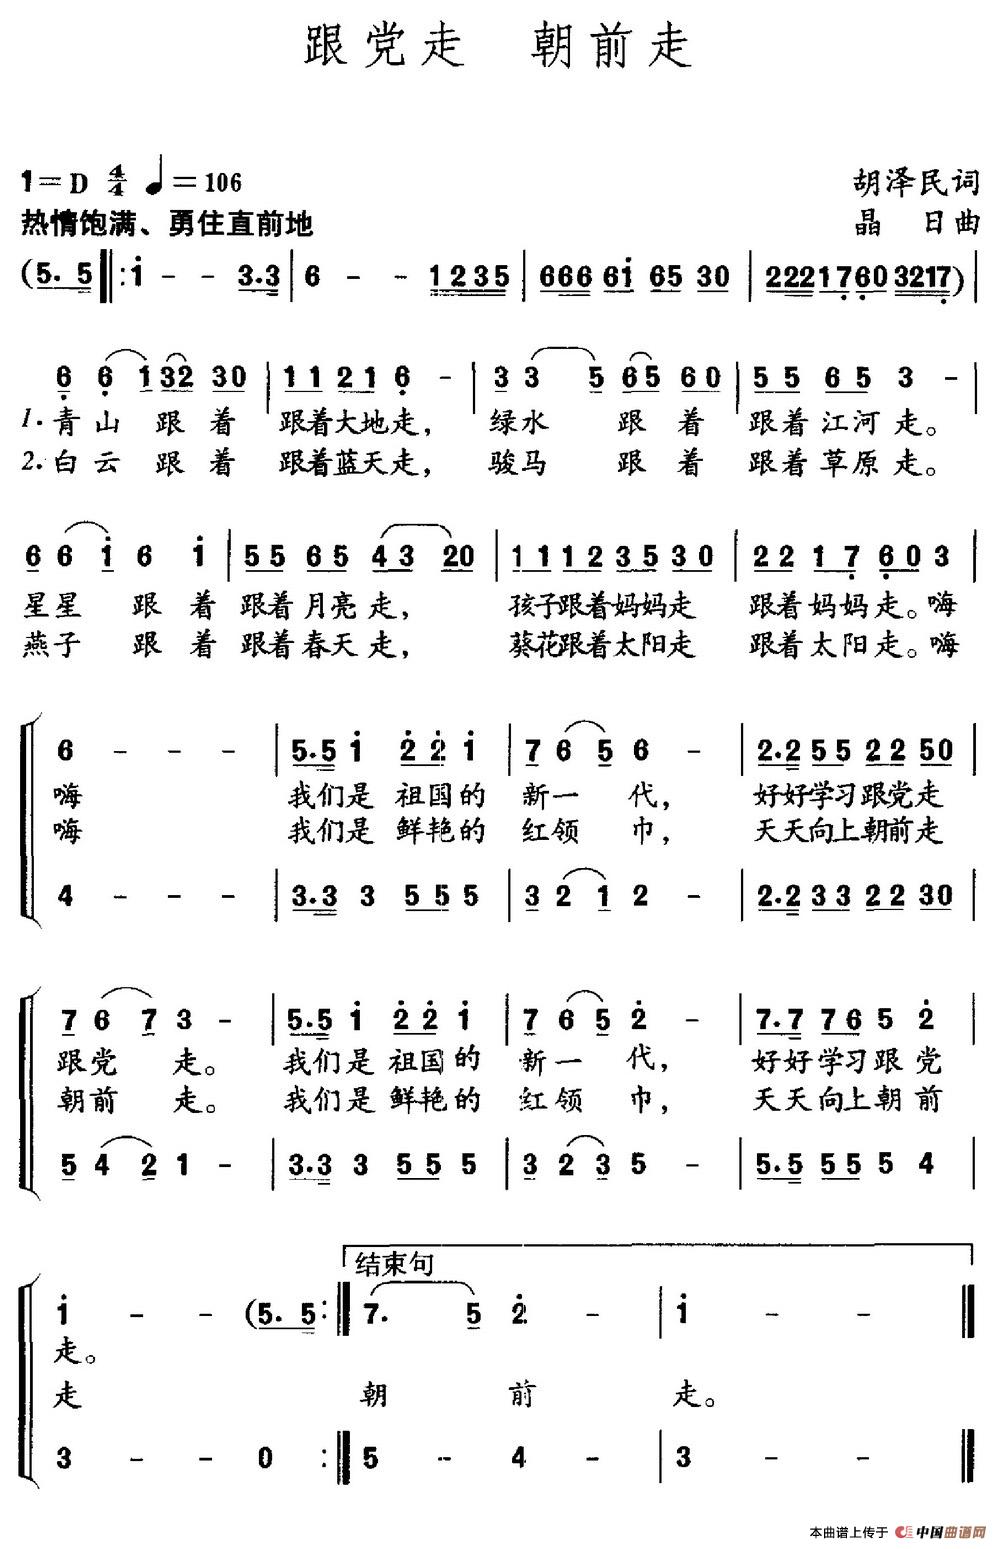 跟党走 朝前走
1=D 4/4 ♩=106 胡泽民词
热情饱满、勇住直前地 晶 日曲
(5. 5 ‖: i - - 3.3 | 6 - - 1235 | 666 6i 65 30 | 2221760 3217) |
6 6 1 32 30 | 11 21 6 - | 3 3 5 65 60 | 55 65 3 - |
1. 青山 跟着 跟着大地走, 绿水 跟着 跟着江河走。
2. 白云 跟着 跟着蓝天走, 骏马 跟着 跟着草原走。
6 6 i 6 i | 55 65 43 20 | 1112 3530 | 22 17 60 3 |
星星 跟着 跟着月亮走, 孩子跟着妈妈走 跟着妈妈走。嗨
燕子 跟着 跟着春天走, 葵花跟着太阳走 跟着太阳走。嗨
6 - - - | 5.5 i 2 2 i | 7 6 5 6 - | 2.2 55 22 50 |
嗨 我们是祖国的 新一代, 好好学习跟党走
嗨 我们是鲜艳的 红领巾, 天天向上朝前走
4 - - - | 3.3 3 55 5 | 3 2 1 2 - | 2.2 33 22 30 |
7 6 7 3 - | 5.5 i 2 2 i | 7 6 5 2 - | 7.7 76 5 2 |
跟党走。 我们是祖国的 新一代, 好好学习跟党
朝前走。 我们是鲜艳的 红领巾, 天天向上朝前
5 4 2 1 - | 3.3 3 55 5 | 3 2 3 5 - | 5.5 55 5 4 |
结束句
i - - (5. 5 :‖ 7. 5 2 - | i - - ‖
走。
走 朝前走。
3 - - 0 :‖ 5 - 4 - | 3 - - - ‖
本曲谱上传于 中国曲谱网